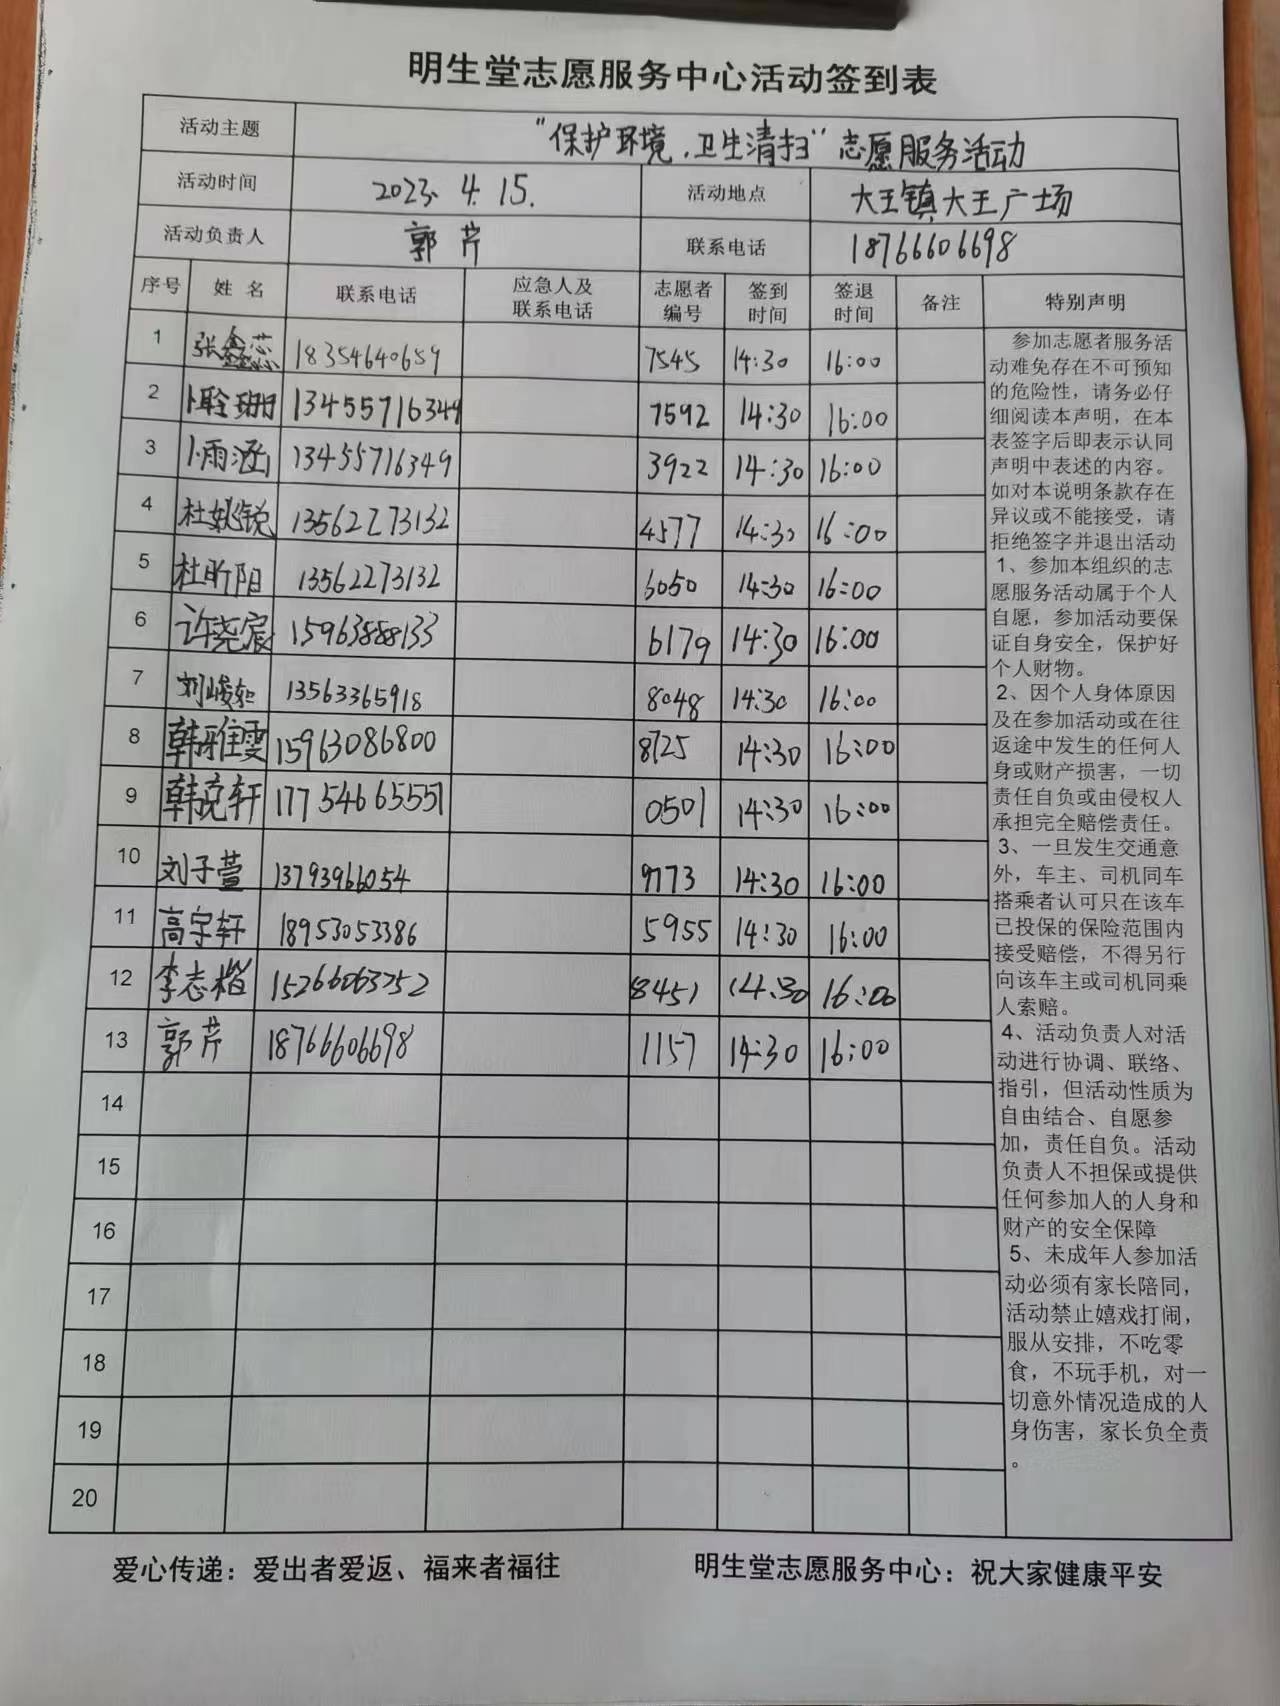 明生堂志愿服务中心活动签到表
活动主题 “保护环境.卫生清扫”志愿服务活动
活动时间 2023.4.15. 活动地点 大王镇大王广场
活动负责人 郭芹 联系电话 18766606698
序号 姓名 联系电话 应急人及联系电话 志愿者编号 签到时间 签退时间 备注 特别声明
1 张鑫蕊 18354640659 7545 14:30 16:00
2 卜聆珊 13455716349 7592 14:30 16:00
3 卜雨涵 13455716349 3922 14:30 16:00
4 杜姚锐 13562273132 4577 14:30 16:00
5 杜昕阳 13562273132 6050 14:30 16:00
6 许尧宸 15963888133 6179 14:30 16:00
7 刘峻如 13563365918 8048 14:30 16:00
8 韩雅雯 15963086800 8725 14:30 16:00
9 韩克轩 17754665551 0501 14:30 16:00
10 刘子萱 13793966054 9773 14:30 16:00
11 高宇轩 18953053386 5955 14:30 16:00
12 李志楷 15266063752 8451 14:30 16:00
13 郭芹 18766606698 1157 14:30 16:00
14
15
16
17
18
19
20
参加志愿者服务活
动难免存在不可预知
的危险性，请务必仔
细阅读本声明，在本
表签字后即表示认同
声明中表述的内容。
如对本说明条款存在
异议或不能接受，请
拒绝签字并退出活动
1、参加本组织的志
愿服务活动属于个人
自愿，参加活动要保
证自身安全，保护好
个人财物。
2、因个人身体原因
及在参加活动或在往
返途中发生的任何人
身或财产损害，一切
责任自负或由侵权人
承担完全赔偿责任。
3、一旦发生交通意
外，车主、司机同车
搭乘者认可只在该车
已投保的保险范围内
接受赔偿，不得另行
向该车主或司机同乘
人索赔。
4、活动负责人对活
动进行协调、联络、
指引，但活动性质为
自由结合、自愿参
加，责任自负。活动
负责人不担保或提供
任何参加人的人身和
财产的安全保障
5、未成年人参加活
动必须有家长陪同，
活动禁止嬉戏打闹，
服从安排，不吃零
食，不玩手机，对一
切意外情况造成的人
身伤害，家长负全责
。
爱心传递：爱出者爱返、福来者福往 明生堂志愿服务中心：祝大家健康平安